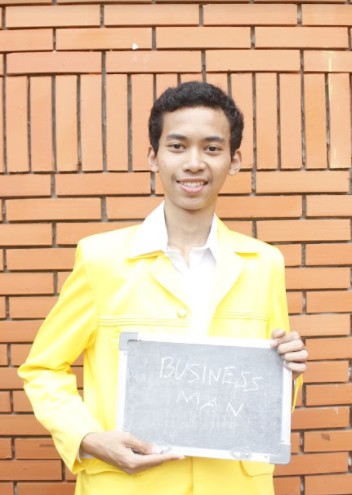 BUSINESS
MAN